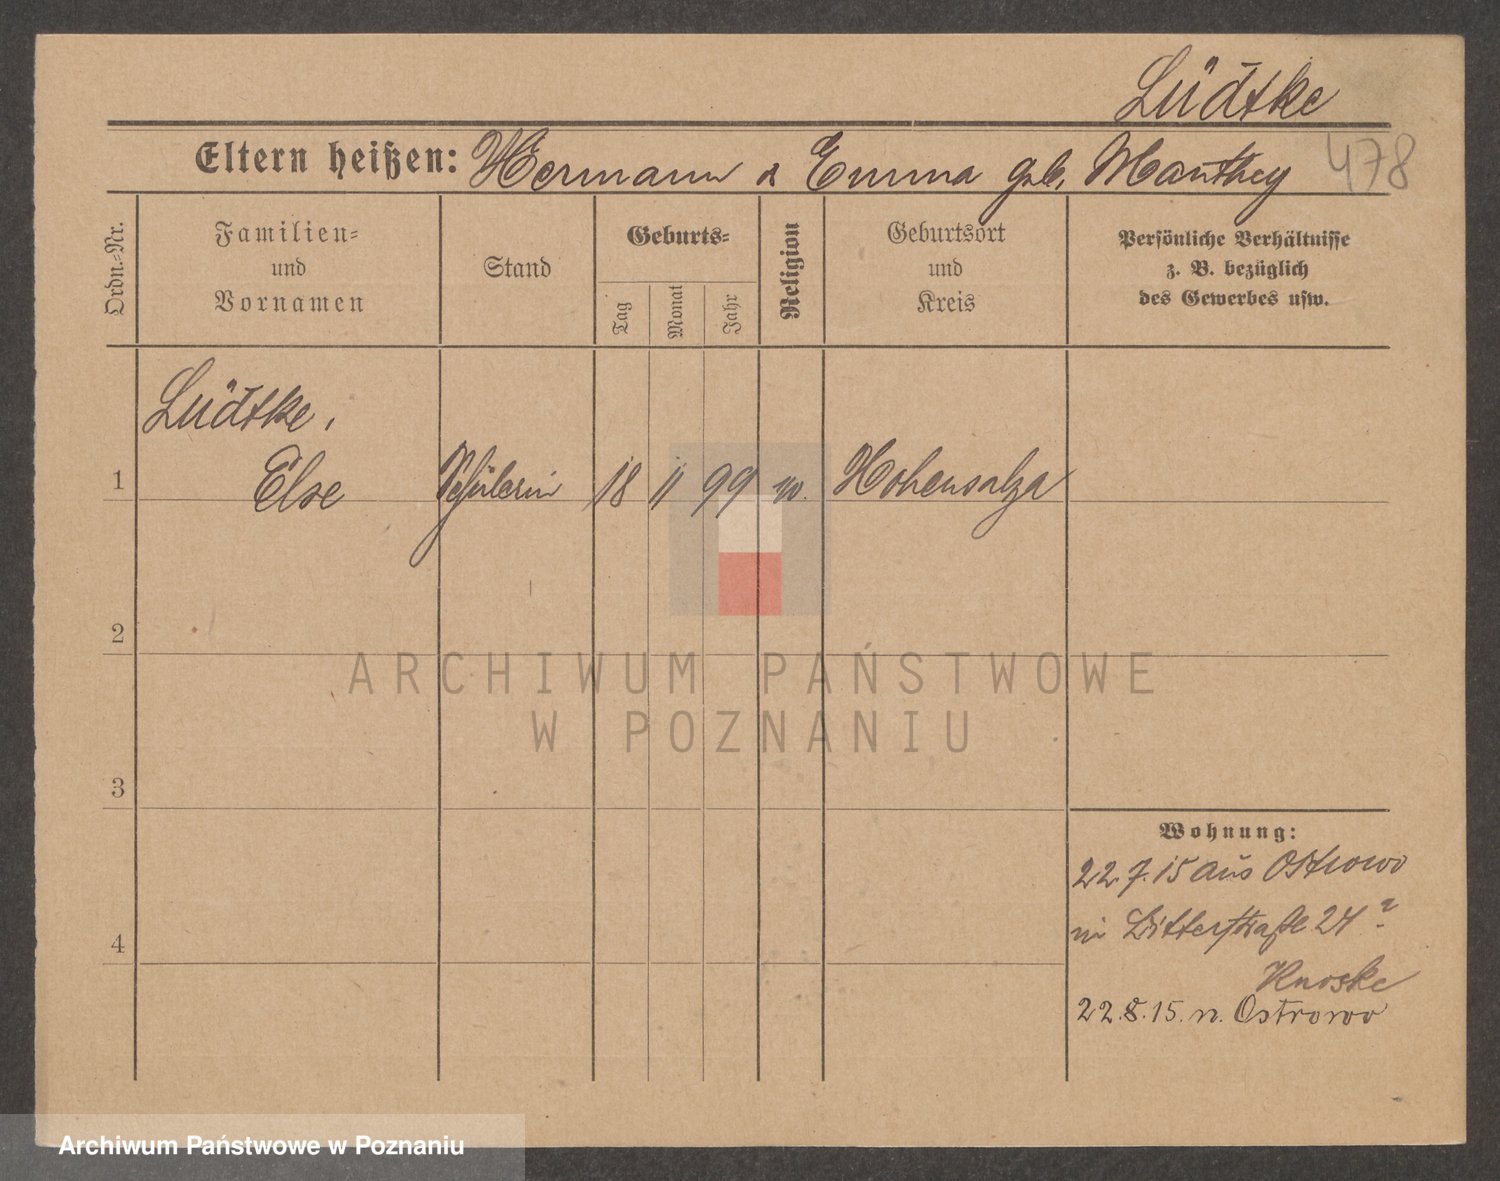 Lüdtke
Eltern heißen: Hermann & Emma geb. Manthey 478
Ordn.-Nr.
Familien-
und
Vornamen
Stand
Geburts-
Tag
Monat
Jahr
Religion
Geburtsort
und
Kreis
Persönliche Verhältnisse
z. B. bezüglich
des Gewerbes usw.
Lüdtke,
1 Else Schülerin 18 11 99 Hohensalza
2
ARCHIWUM PAŃSTWOWE
W POZNANIU
3
Wohnung:
22.7.15 aus Ostrowo
4
in Ritterstraße 24
22.8.15. n. Ostrowo
Archiwum Państwowe w Poznaniu